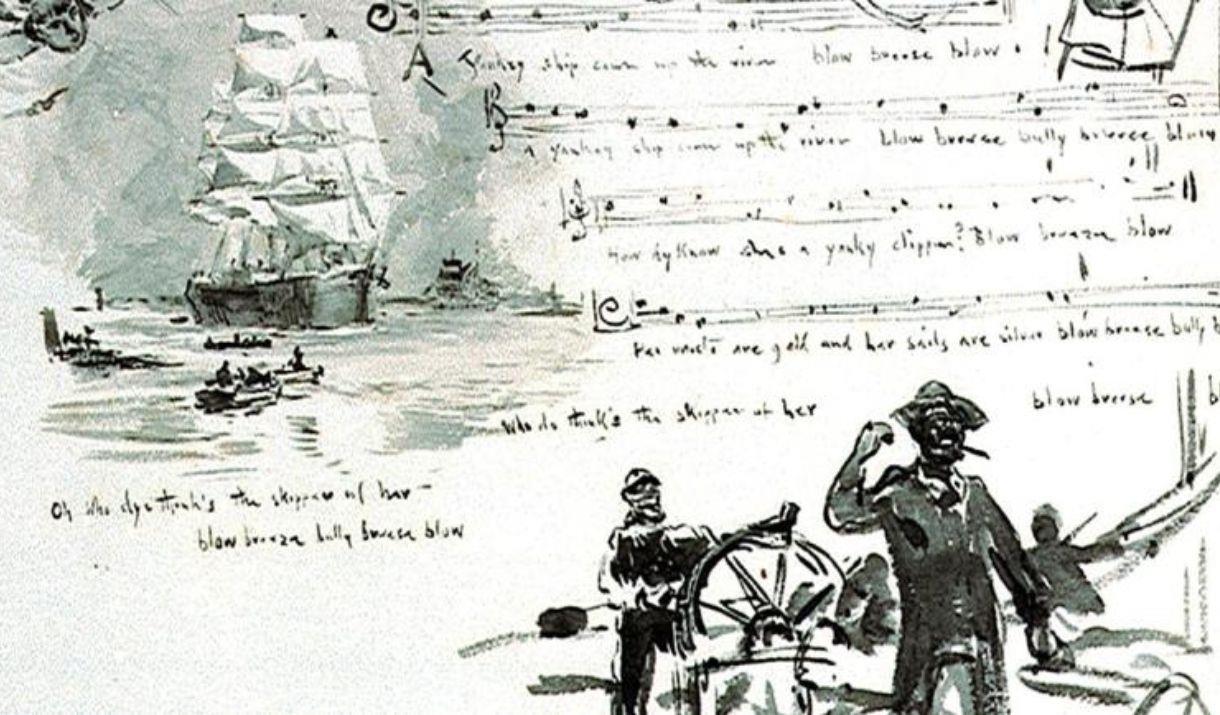 A Yankey ship comes up the river blow breeze blow
a yankey ship comes up the river blow breeze bully breeze blow
How dy know shes a yanky clipper? Blow breeze blow
Her masts are gold and her sails are silver blow breeze bully b
Who do think's the skipper of her blow breeze b
Oh who dye think's the skipper of her
blow breeze bully breeze blow